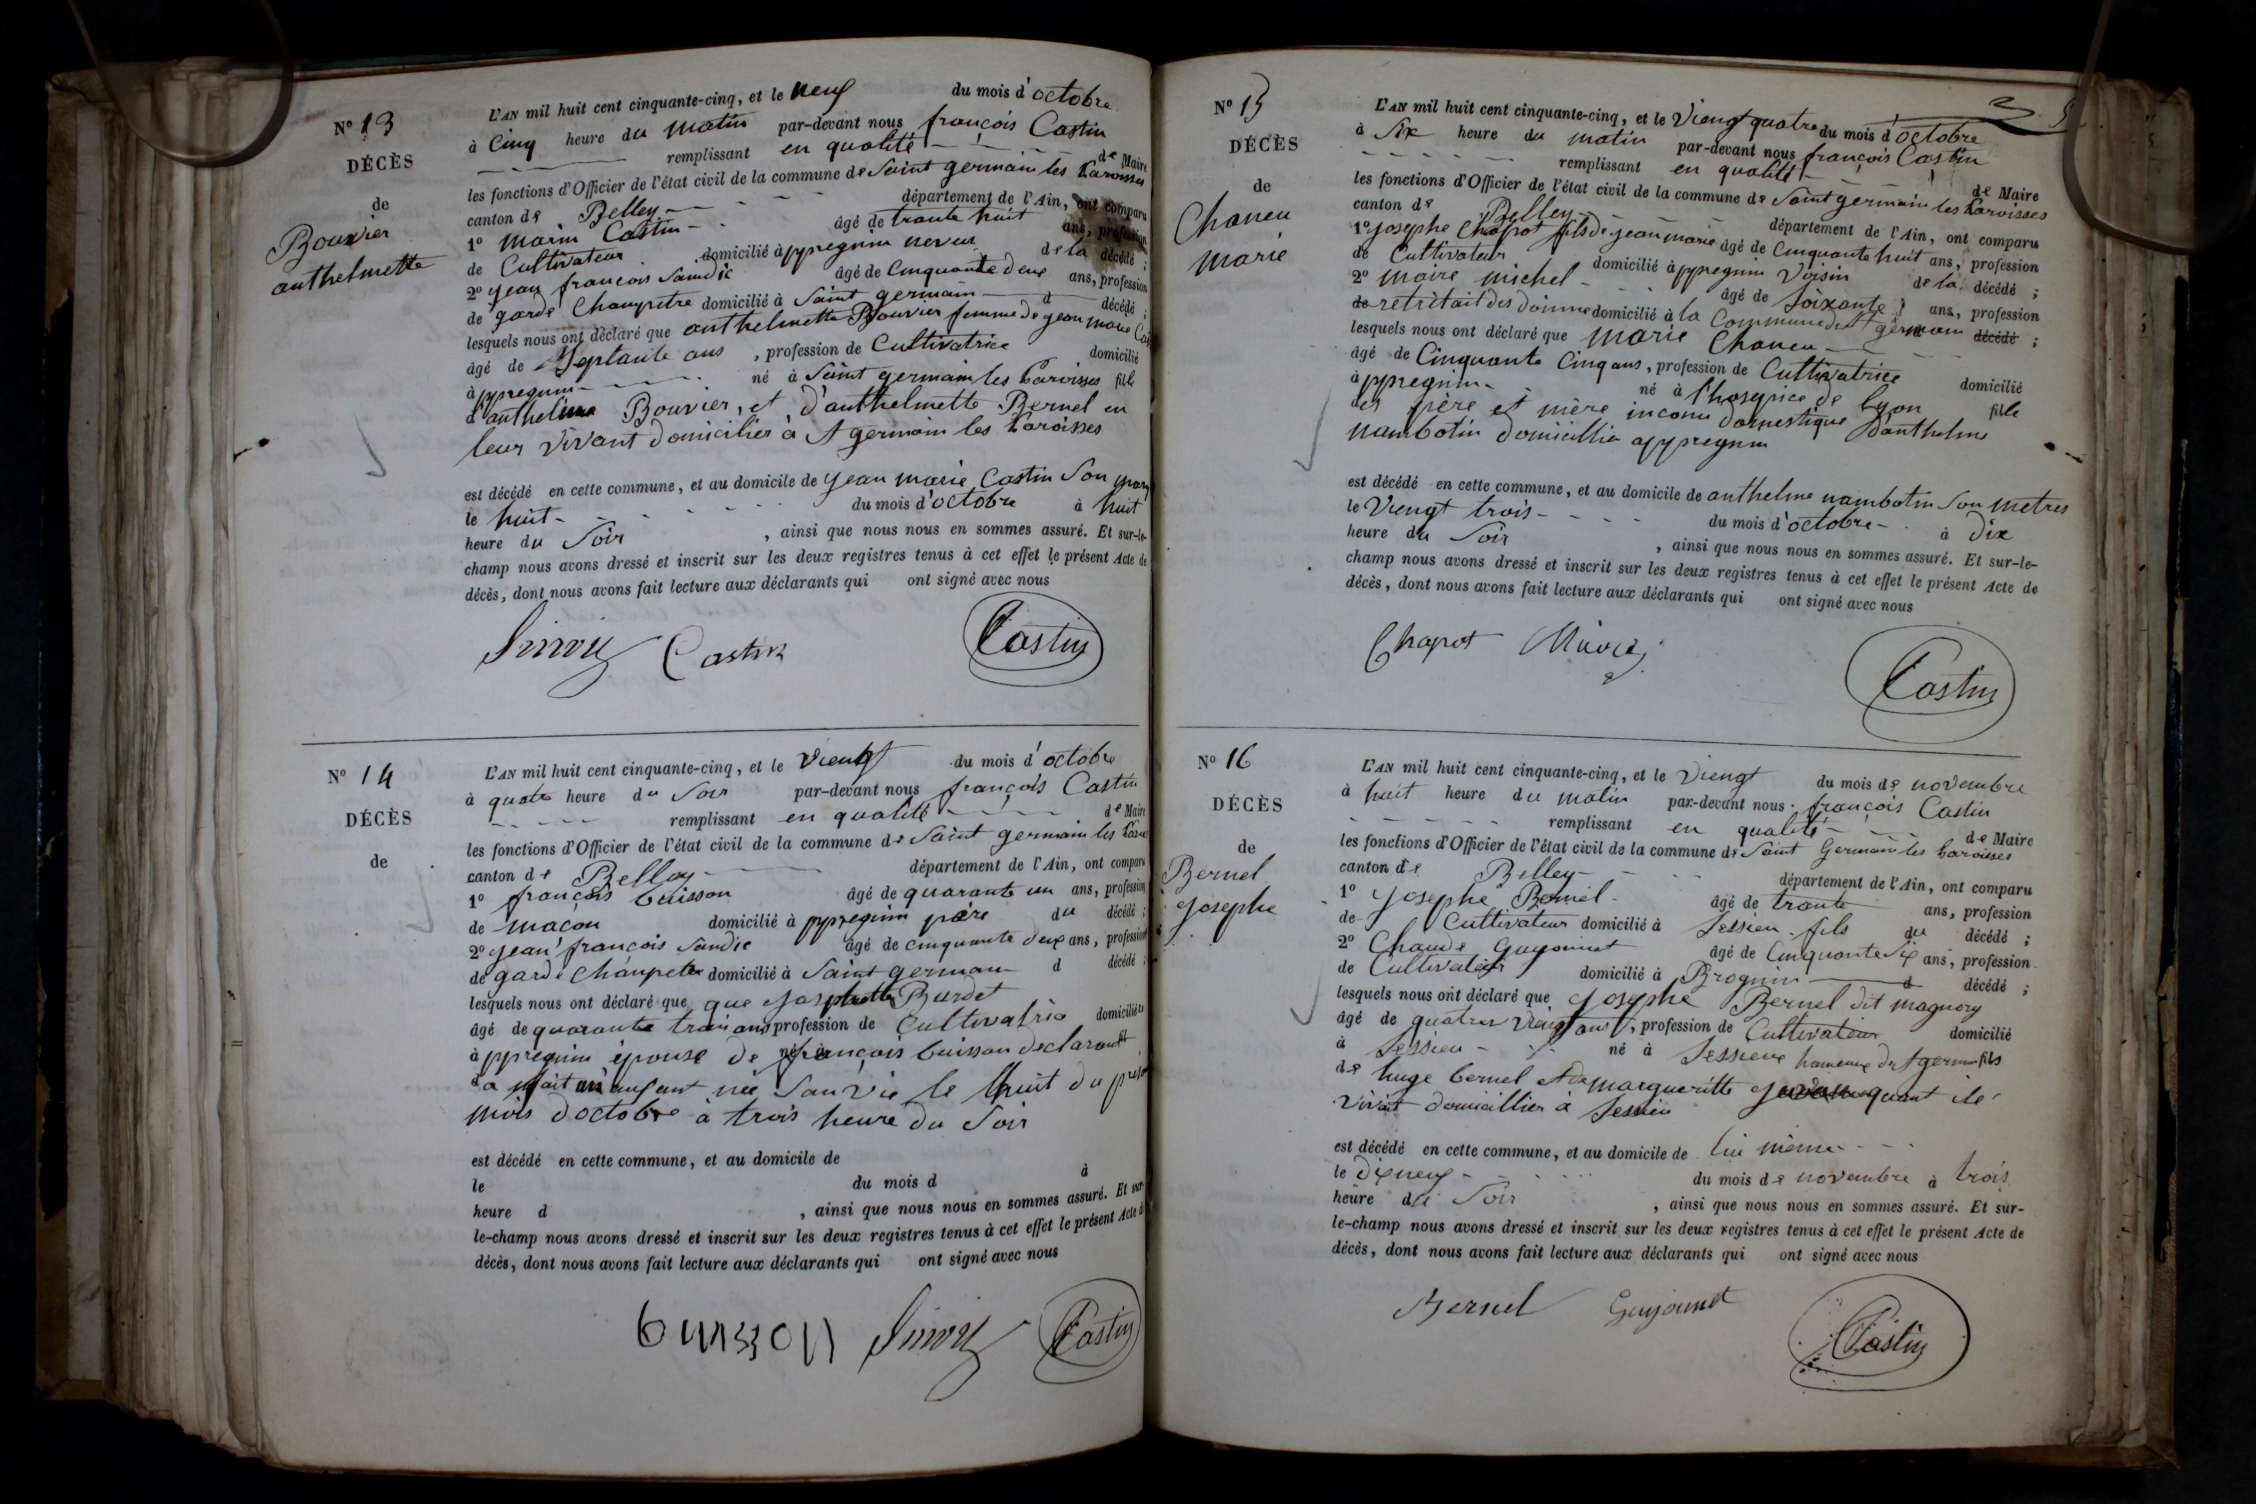 Nº 13
DÉCÈS
de
Bouvier
anthelmette
L'AN mil huit cent cinquante-cinq, et le neuf du mois d'octobre
à Cinq heure du matin par-devant nous françois Castin
remplissant en qualité de Maire
les fonctions d'Officier de l'état civil de la commune de Saint germain les Paroisses
canton de Belley département de l'Ain, ont comparu
1º marin Castin âgé de trante huit ans, profession
de Cultivateur domicilié à ppregnin neveu de la décédé ;
2º jean françois Sandic âgé de Cinquante deux ans, profession
de garde Champetre domicilié à Saint germain d décédé ;
lesquels nous ont déclaré que anthelmette Bouvier femme de jean marie
âgé de Septante ans , profession de Cultivatrice domicilié
à ppregnin né à Saint germain les Paroisses fille
d'anthelme Bouvier, et d'anthelmette Bernel en
leur vivant domicilier à St germain les Paroisses
est décédé en cette commune, et au domicile de jean marie Castin Son mary
le huit du mois d'octobre à huit
heure du Soir , ainsi que nous nous en sommes assuré. Et sur-le-
champ nous avons dressé et inscrit sur les deux registres tenus à cet effet le présent Acte de
décès, dont nous avons fait lecture aux déclarants qui ont signé avec nous
Castin Castin
Nº 14
DÉCÈS
de
L'AN mil huit cent cinquante-cinq, et le Viengt du mois d'octobre
à quatre heure du Soir par-devant nous françois Castin
remplissant en qualité de Maire
les fonctions d'Officier de l'état civil de la commune de Saint germain les
canton de Belley département de l'Ain, ont comparu
1º françois buisson âgé de quarante un ans, profession
de maçon domicilié à ppregnin père du décédé ;
2º jean françois Sandic âgé de cinquante deux ans, profession
de garde Champetre domicilié à Saint germain d décédé ;
lesquels nous ont déclaré que que josephette Burdet
âgé de quarante trois ans profession de Cultivatrice domicilié
à ppregnin épouse de françois buisson declarant
a fait un enfant née San vie le huit du
mois d'octobre à trois heure du Soir
est décédé en cette commune, et au domicile de
le du mois d à
heure d , ainsi que nous nous en sommes assuré. Et sur-
le-champ nous avons dressé et inscrit sur les deux registres tenus à cet effet le présent Acte d
décès, dont nous avons fait lecture aux déclarants qui ont signé avec nous
buisson Castin
Nº 15
DÉCÈS
de
Chaneu
marie
L'AN mil huit cent cinquante-cinq, et le Viengt quatre du mois d'octobre
à Six heure du matin par-devant nous françois Castin
remplissant en qualité de Maire
les fonctions d'Officier de l'état civil de la commune de Saint germain les Paroisses
canton de Belley département de l'Ain, ont comparu
1º josephe Chapot fils de jean marie âgé de Cinquante huit ans, profession
de Cultivateur domicilié à ppregnin Voisin de la décédé ;
2º maire michel âgé de Soixante ans, profession
de retritait des domicilié à la Commune de St germain décédé ;
lesquels nous ont déclaré que marie Chaneu
âgé de Cinquante Cinq ans, profession de Cultivatrice domicilié
à ppregnin né à l'hosepice de Lyon fille
des père et mère inconu domestique d'anthelme
nambotin domicillié a ppregnin
est décédé en cette commune, et au domicile de anthelme nambotin Son metres
le Viengt trois du mois d'octobre à dix
heure du Soir , ainsi que nous nous en sommes assuré. Et sur-le-
champ nous avons dressé et inscrit sur les deux registres tenus à cet effet le présent Acte de
décès, dont nous avons fait lecture aux déclarants qui ont signé avec nous
Chapot Castin
Nº 16
DÉCÈS
de
Bernel
josephe
L'AN mil huit cent cinquante-cinq, et le Viengt du mois de novembre
à huit heure du matin par-devant nous françois Castin
remplissant en qualité de Maire
les fonctions d'Officier de l'état civil de la commune de Saint Germain les Paroisses
canton de Belley département de l'Ain, ont comparu
1º josephe Bernel âgé de trante ans, profession
de Cultivateur domicilié à Sessieu fils du décédé ;
2º Chaude Guyonnet âgé de Cinquante Six ans, profession
de Cultivateur domicilié à Brognin d décédé ;
lesquels nous ont déclaré que josephe Bernel dit magnory
âgé de quatres Viengt ans , profession de Cultivateur domicilié
à Sessieu né à Sessieux hameaux de St germain fils
de huge bernel et de margueritte quant ile
vivoit domicillier à Sessieu
est décédé en cette commune, et au domicile de lui même
le dixneuf du mois de novembre à trois
heure du Soir , ainsi que nous nous en sommes assuré. Et sur-
le-champ nous avons dressé et inscrit sur les deux registres tenus à cet effet le présent Acte de
décès, dont nous avons fait lecture aux déclarants qui ont signé avec nous
Bernel Guyonnet Castin